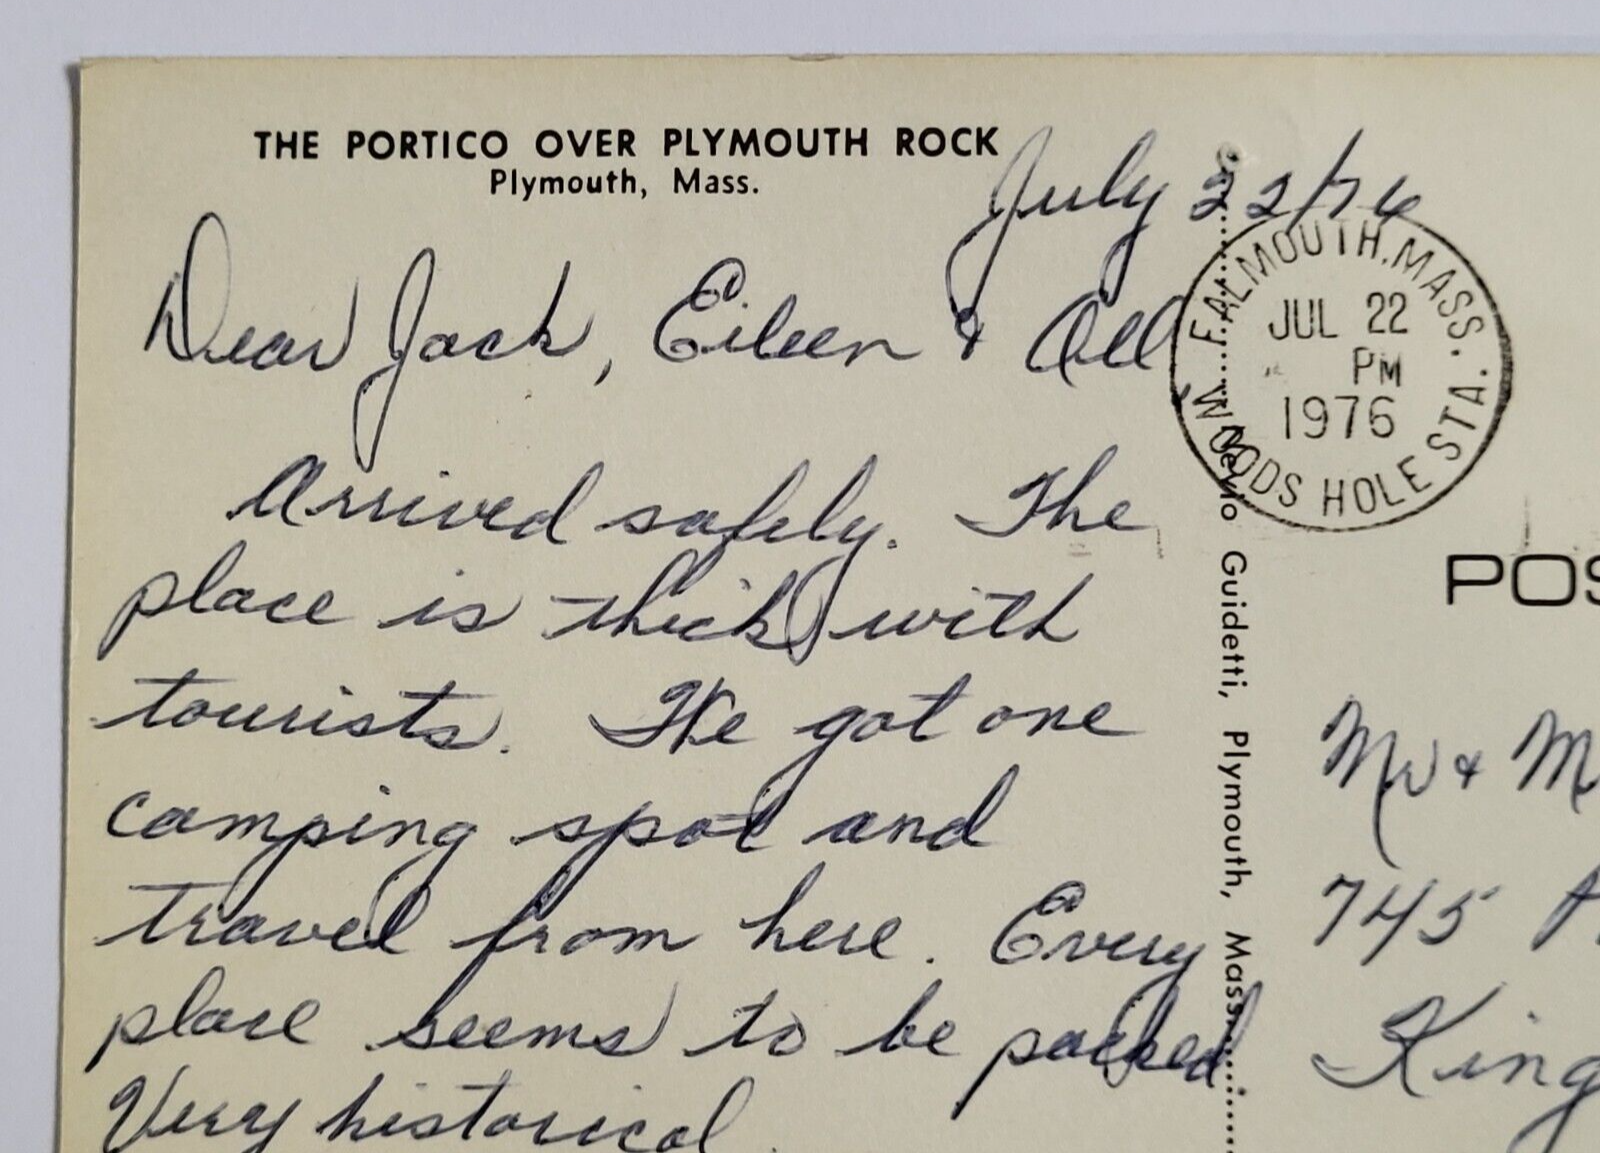 THE PORTICO OVER PLYMOUTH ROCK
Plymouth, Mass.
July 22/76
Dear Jack, Eileen & All
Arrived safely. The
place is thick with
tourists. We got one
camping spot and
travel from here. Every
place seems to be packed
Very historical.
FALMOUTH, MASS.
JUL 22
PM
1976
WOODS HOLE STA.
Guidetti, Plymouth, Mass.
POS
Mr & M
745
King